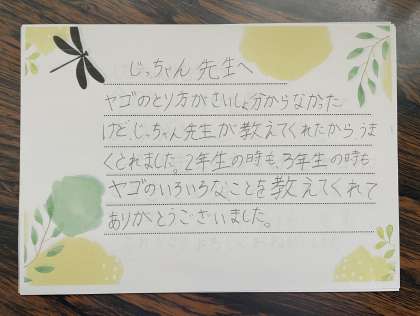 じっちゃん先生へ
ヤゴのとり方がさいしょ分からなかった
けど、じっちゃん先生が教えてくれたからうま
くとれました。2年生の時も、3年生の時も
ヤゴのいろいろなことを教えてくれて
ありがとうございました。